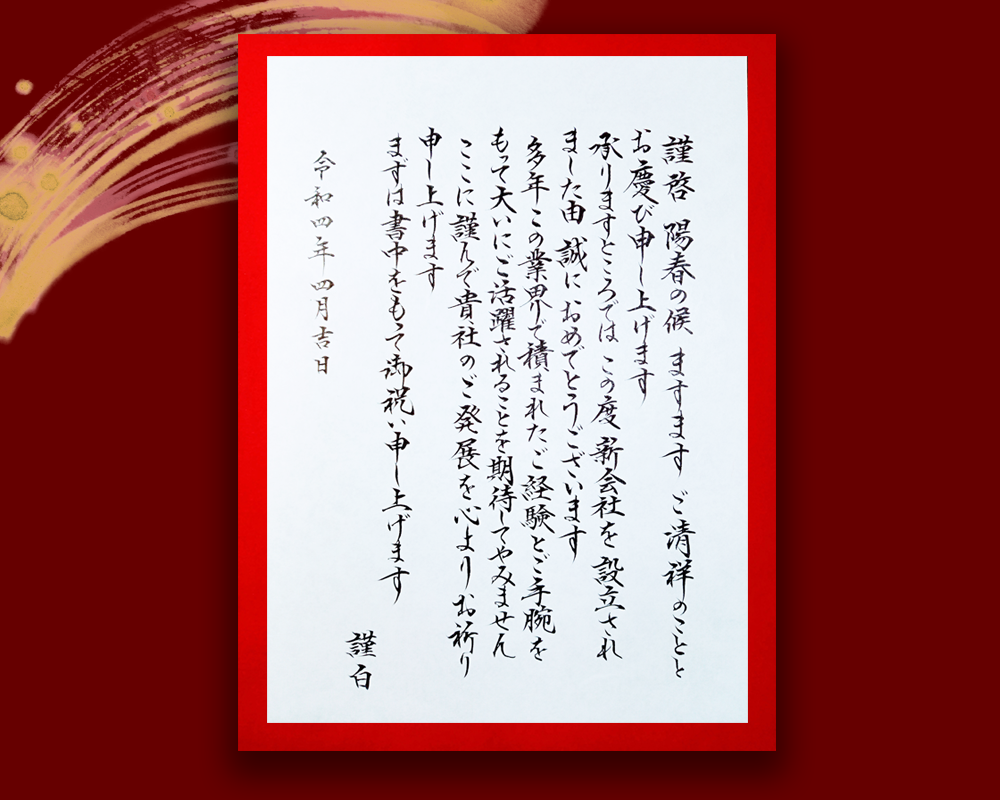 謹啓 陽春の候 ますます ご清祥のことと
お慶び申し上げます
承りますところでは この度 新会社を 設立され
ました由 誠に おめでとうございます
多年この業界で積まれたご経験とご手腕を
もって大いにご活躍されることを期待してやみません
ここに謹んで貴社のご発展を心よりお祈り
申し上げます
まずは書中をもって御祝い申し上げます
謹白
令和四年四月吉日